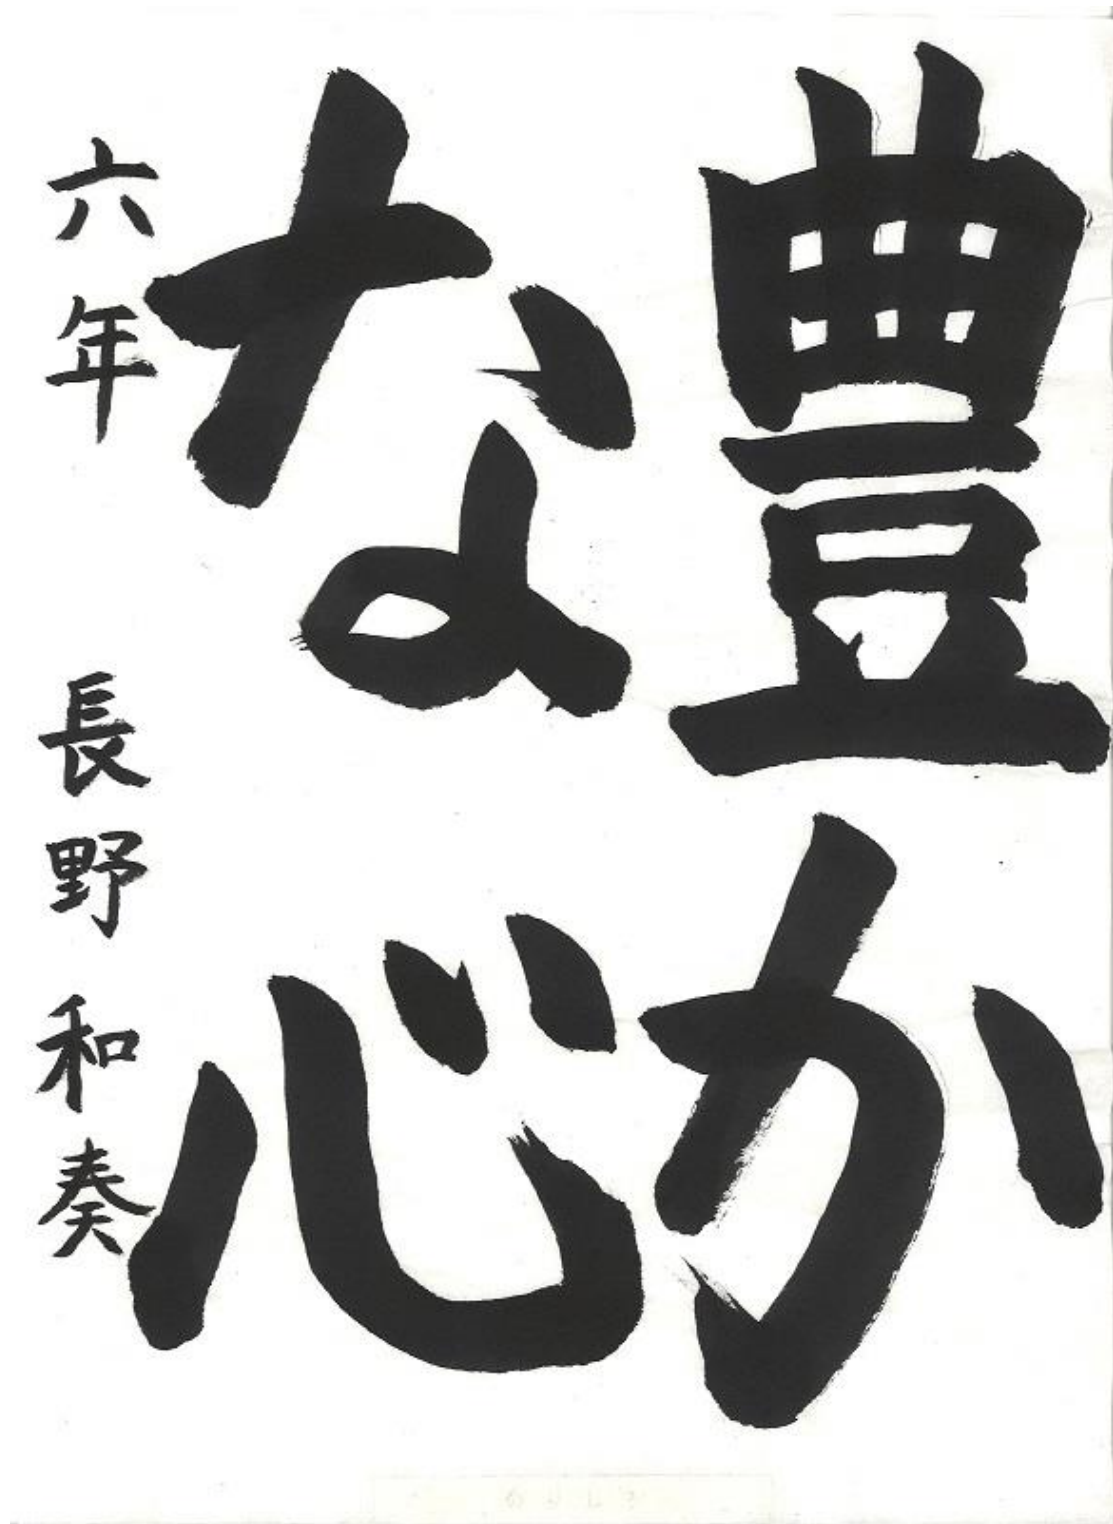 豊か
な心
六年 長野和奏